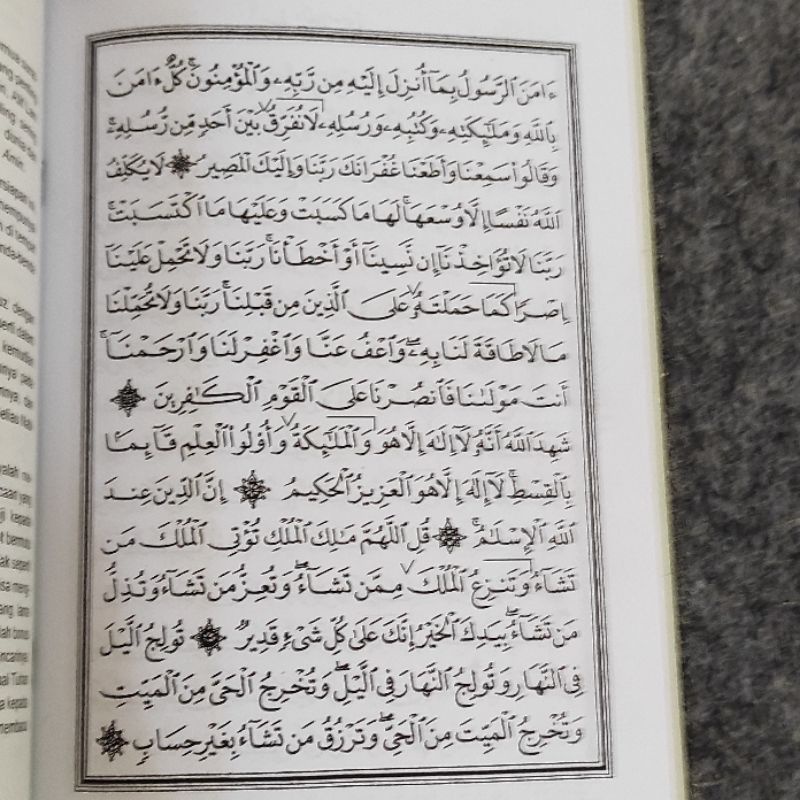 ءَامَنَ ٱلرَّسُولُ بِمَآ أُنزِلَ إِلَيْهِ مِن رَّبِّهِۦ وَٱلْمُؤْمِنُونَۚ كُلٌّ ءَامَنَ
بِٱللَّهِ وَمَلَٰٓئِكَتِهِۦ وَكُتُبِهِۦ وَرُسُلِهِۦ لَا نُفَرِّقُ بَيْنَ أَحَدٍ مِّن رُّسُلِهِۦۚ
وَقَالُوا۟ سَمِعْنَا وَأَطَعْنَا غُفْرَانَكَ رَبَّنَا وَإِلَيْكَ ٱلْمَصِيرُ ۞ لَا يُكَلِّفُ
ٱللَّهُ نَفْسًا إِلَّا وُسْعَهَاۚ لَهَا مَا كَسَبَتْ وَعَلَيْهَا مَا ٱكْتَسَبَتْۗ
رَبَّنَا لَا تُؤَاخِذْنَآ إِن نَّسِينَآ أَوْ أَخْطَأْنَاۚ رَبَّنَا وَلَا تَحْمِلْ عَلَيْنَآ
إِصْرًا كَمَا حَمَلْتَهُۥ عَلَى ٱلَّذِينَ مِن قَبْلِنَاۚ رَبَّنَا وَلَا تُحَمِّلْنَا
مَا لَا طَاقَةَ لَنَا بِهِۦۖ وَٱعْفُ عَنَّا وَٱغْفِرْ لَنَا وَٱرْحَمْنَآۚ
أَنتَ مَوْلَىٰنَا فَٱنصُرْنَا عَلَى ٱلْقَوْمِ ٱلْكَٰفِرِينَ ۞
شَهِدَ ٱللَّهُ أَنَّهُۥ لَآ إِلَٰهَ إِلَّا هُوَ وَٱلْمَلَٰٓئِكَةُ وَأُو۟لُوا۟ ٱلْعِلْمِ قَآئِمًۢا
بِٱلْقِسْطِۚ لَآ إِلَٰهَ إِلَّا هُوَ ٱلْعَزِيزُ ٱلْحَكِيمُ ۞ إِنَّ ٱلدِّينَ عِندَ
ٱللَّهِ ٱلْإِسْلَٰمُۗ ۞ قُلِ ٱللَّهُمَّ مَٰلِكَ ٱلْمُلْكِ تُؤْتِى ٱلْمُلْكَ مَن
تَشَآءُ وَتَنزِعُ ٱلْمُلْكَ مِمَّن تَشَآءُۖ وَتُعِزُّ مَن تَشَآءُ وَتُذِلُّ
مَن تَشَآءُۖ بِيَدِكَ ٱلْخَيْرُ إِنَّكَ عَلَىٰ كُلِّ شَىْءٍ قَدِيرٌ ۞ تُولِجُ ٱلَّيْلَ
فِى ٱلنَّهَارِ وَتُولِجُ ٱلنَّهَارَ فِى ٱلَّيْلِۖ وَتُخْرِجُ ٱلْحَىَّ مِنَ ٱلْمَيِّتِ
وَتُخْرِجُ ٱلْمَيِّتَ مِنَ ٱلْحَىِّۖ وَتَرْزُقُ مَن تَشَآءُ بِغَيْرِ حِسَابٍ ۞